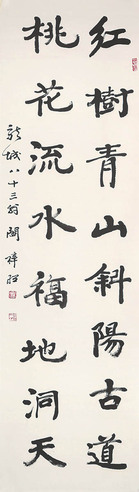 紅樹青山斜陽古道
桃花流水福地洞天
龍城八十三翁閻祥麐